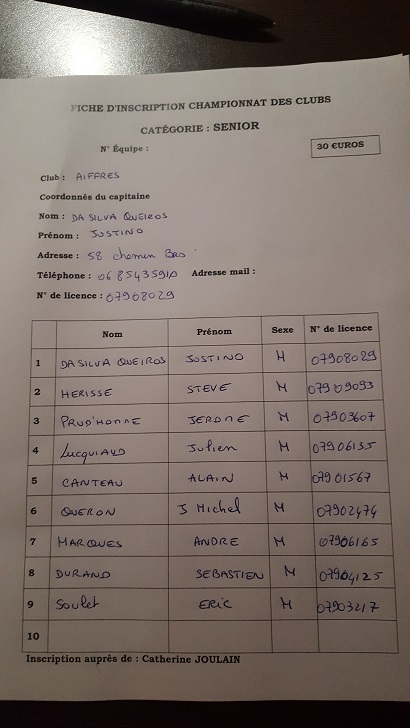 FICHE D'INSCRIPTION CHAMPIONNAT DES CLUBS
CATÉGORIE : SENIOR
N° Équipe :
30 €UROS
Club : AIFFRES
Coordonnés du capitaine
Nom : DA SILVA QUEIROS
Prénom : JUSTINO
Adresse : 58 chemin Bas
Téléphone : 0685435910 Adresse mail :
N° de licence : 07908029
Nom Prénom Sexe N° de licence
1 DA SILVA QUEIROS JUSTINO M 07908029
2 HERISSE STEVE M 07909093
3 PRUD'HOMME JEROME M 07903607
4 Lucquiaud Julien M 07906135
5 CANTEAU ALAIN M 07901567
6 QUERON J Michel M 07902474
7 MARQUES ANDRE M 07906165
8 DURAND SEBASTIEN M 07904125
9 Soulet ERIC M 07903217
10
Inscription auprès de : Catherine JOULAIN